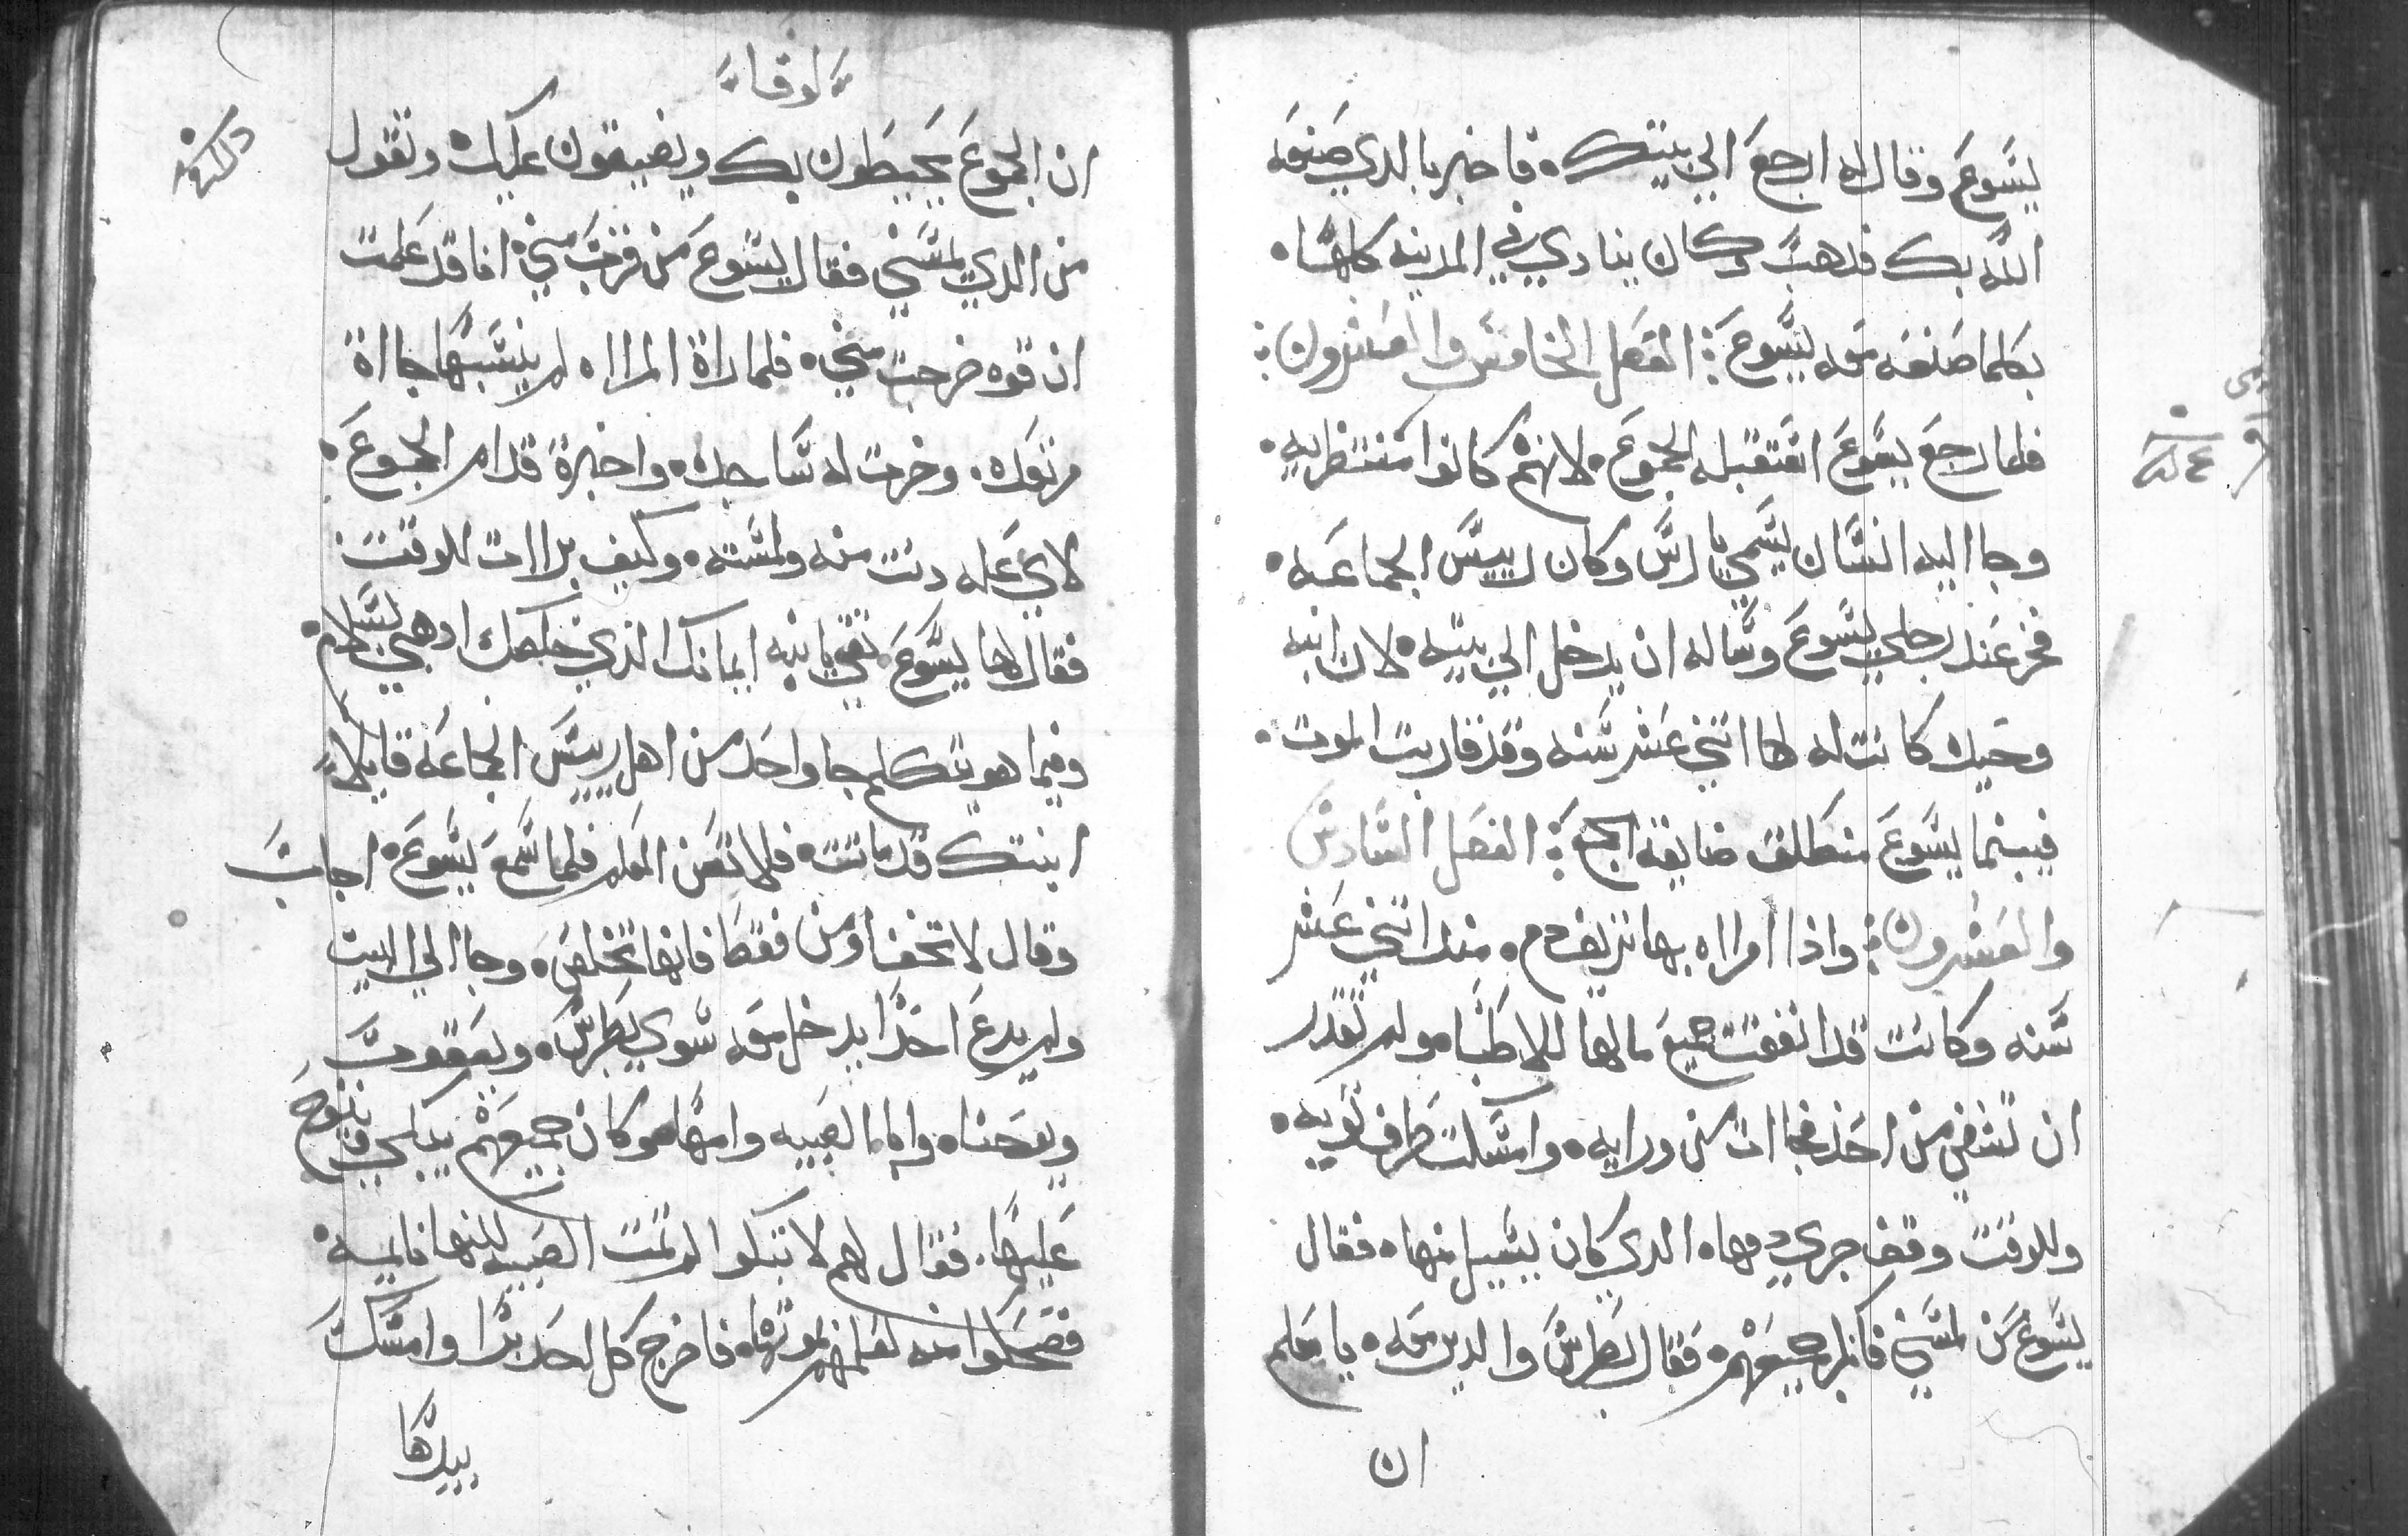 يسوع وقال له ارجع الي بيتك فاخبر بالدي صنعه
الله بك فدهب وكان ينادي في المدينه كلها
بكلما صنعه معه يسوع الفصل الخامس والعشرون
فلما رجع يسوع اتقبله الجموع لانهم كانوا منتظريه
وجا اليه انسان يسمي يارس وكان رييس الجماعه
فخر عند رجلي يسوع وساله ان يدخل الي بيته لان ابنه
وحيده كانت له لها اتني عشر سنه وقد قاربت الموت
فبينما يسوع منطلق ضايقه الجمع الفصل السادس
والعشرون واذا امراه بها نزيف دم مند اتني عشر
سنه وكانت قد انفقت جميع مالها للاطبا ولم تقدر
ان تشفي من احد فجاات من ورايه وامسكت طرف توبه
وللوقت وقف جري دمها الدي كان يسيل منها فقال
يسوع من لمسني فانكر جميعهم فقال بطرس والدين معه يا معلم
ان
لوقا
ان الجموع يحيطون بك ويضيقون عليك وتقول
من الدي لمسني فقال يسوع من قرب مني انا قد علمت
ان قوه خرجت مني فلما راة المراه لم ينسبها جااة
مرتعده وخرت له ساجده واخبرة قدام الجموع
لاي عله دنت منه ولمسته وكيف براات للوقت
فقال لها يسوع تقي يا ابنه ايمانك الدي خلصك ادهبي بسلام
وفيما هو يتكلم جا واحد من اهل رييس الجماعه قايلا
ابنتك قد ماتت فلا تعن المعلم فلما سمع يسوع اجاب
وقال لا تخف اومن فقط فانها تخلص وجا الي البيت
ولم يدع احدا يدخل معه سوي بطرس ويعقوب
ويوحنا وابا الصبيه وامها وكان جميعهم يبكي وينوح
عليها فقال لهم لا تبكوا لم تمت الصبيه لكنها نايمه
فضحكوا منه لعلمهم بموتها فاخرج كل احد برا وامسك
بيدها